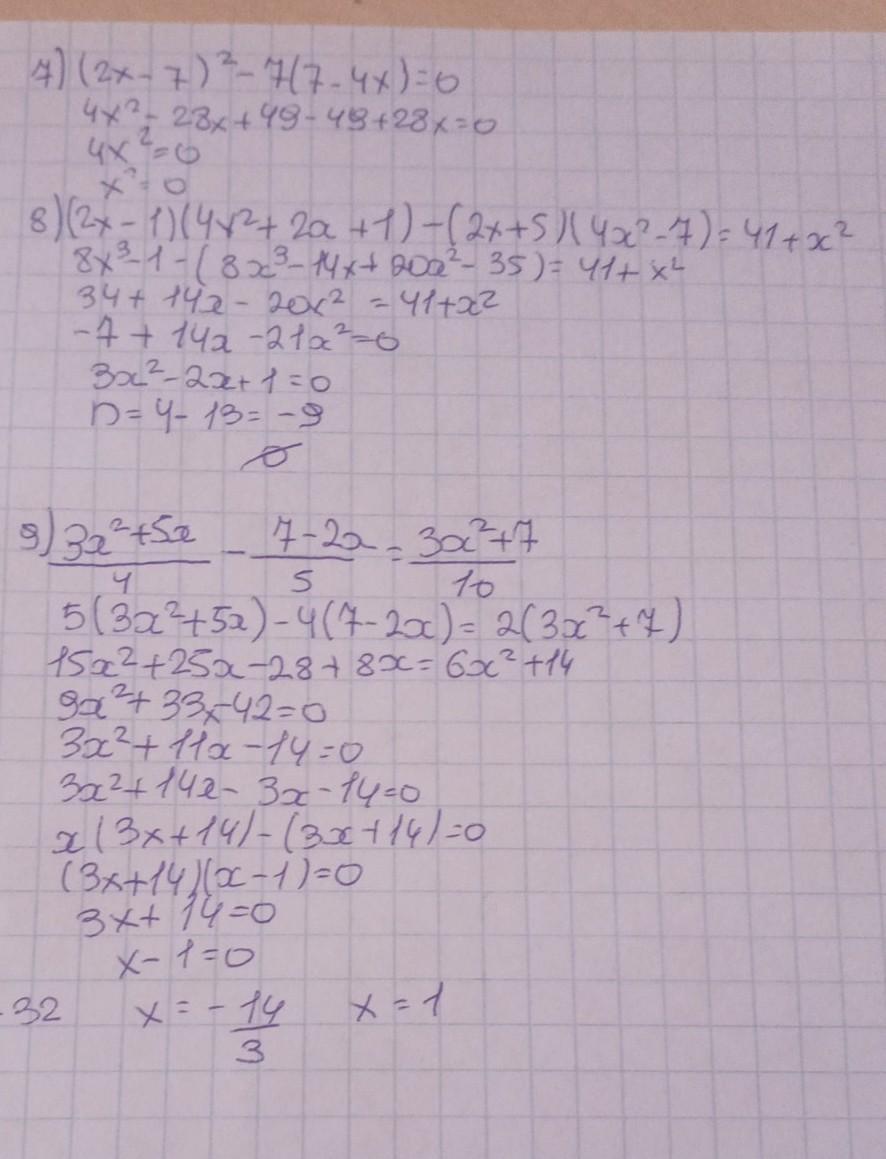 7) (2x - 7)² - 7(7 - 4x) = 0
4x² - 28x + 49 - 49 + 28x = 0
4x² = 0
x = 0
8) (2x - 1)(4x² + 2x + 1) - (2x + 5)(4x² - 7) = 41 + x²
8x³ - 1 - (8x³ - 14x + 20x² - 35) = 41 + x²
34 + 14x - 20x² = 41 + x²
-7 + 14x - 21x² = 0
3x² - 2x + 1 = 0
D = 4 - 13 = -9
∅
9) (3x² + 5x)/4 - (7 - 2x)/5 = (3x² + 7)/10
5(3x² + 5x) - 4(7 - 2x) = 2(3x² + 7)
15x² + 25x - 28 + 8x = 6x² + 14
9x² + 33x - 42 = 0
3x² + 11x - 14 = 0
3x² + 14x - 3x - 14 = 0
x(3x + 14) - (3x + 14) = 0
(3x + 14)(x - 1) = 0
3x + 14 = 0
x - 1 = 0
-32 x = -14/3 x = 1